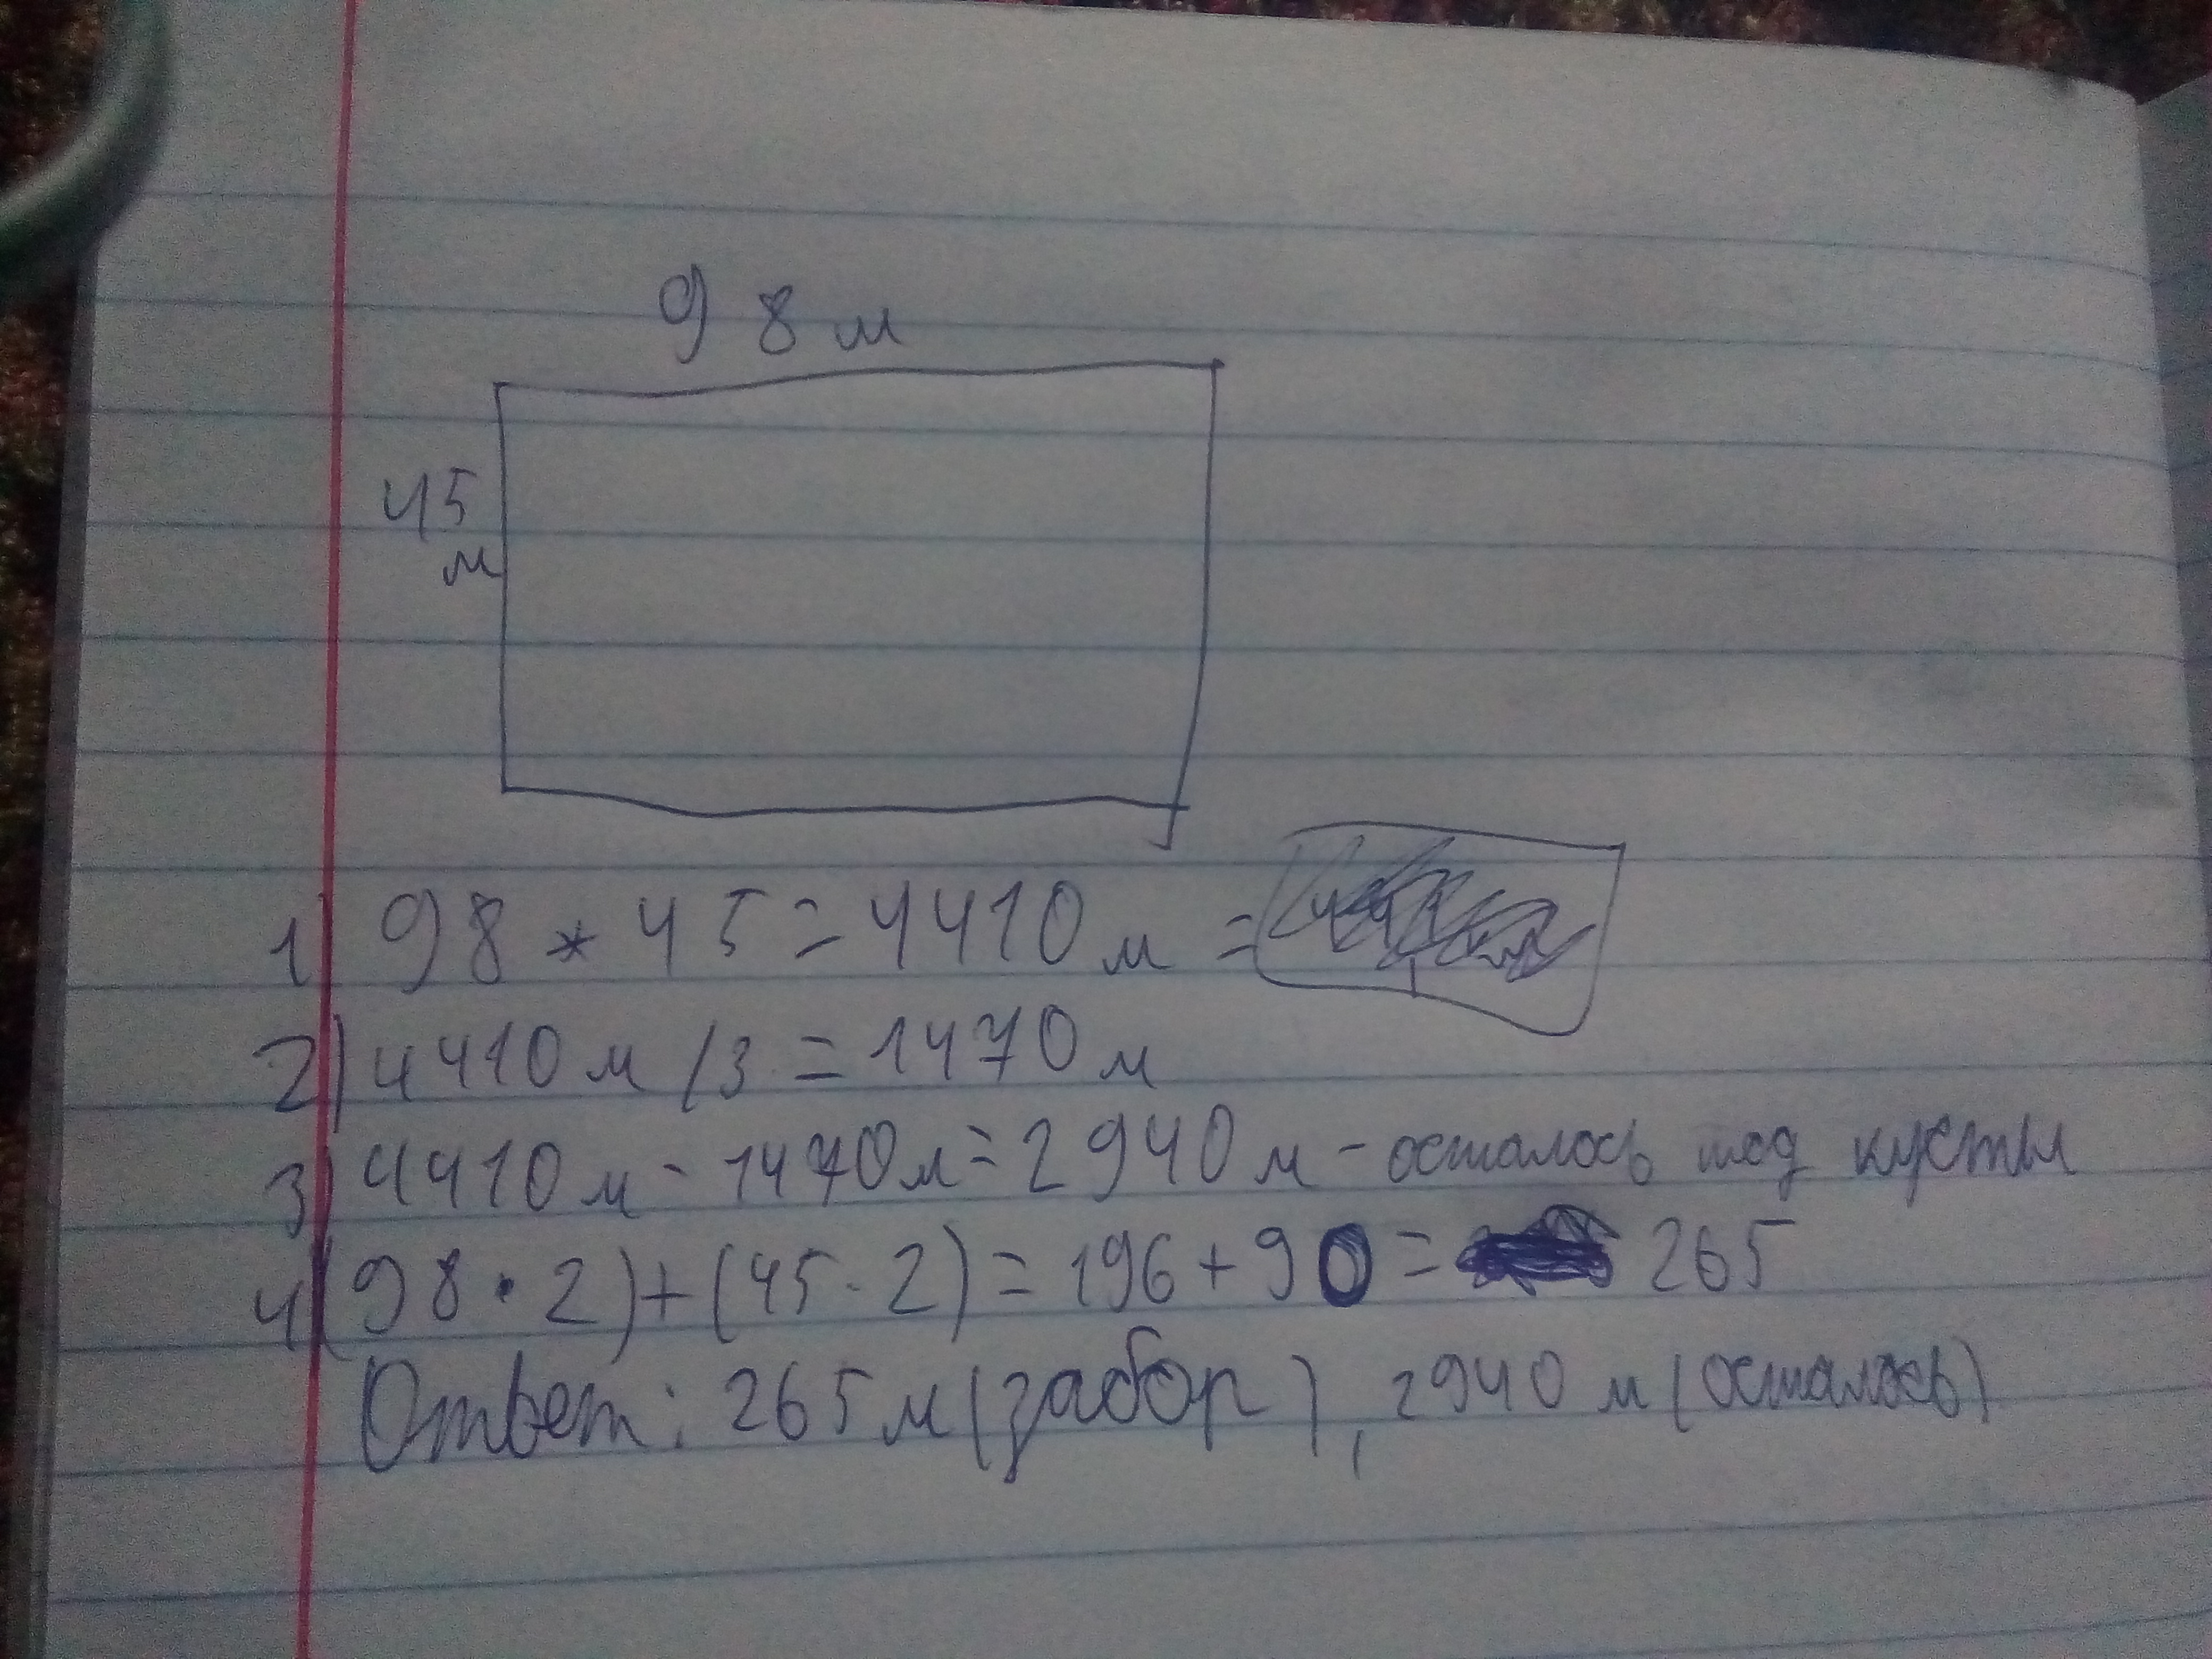 98м
45
м
1) 98 * 45 = 4410 м =
2) 4410 м /3 = 1470 м
3) 4410 м - 1470 м = 2940 м - осталось под кусты
4) (98 · 2) + (45 · 2) = 196 + 90 = 265
Ответ: 265 м (забор), 2940 м (осталось)